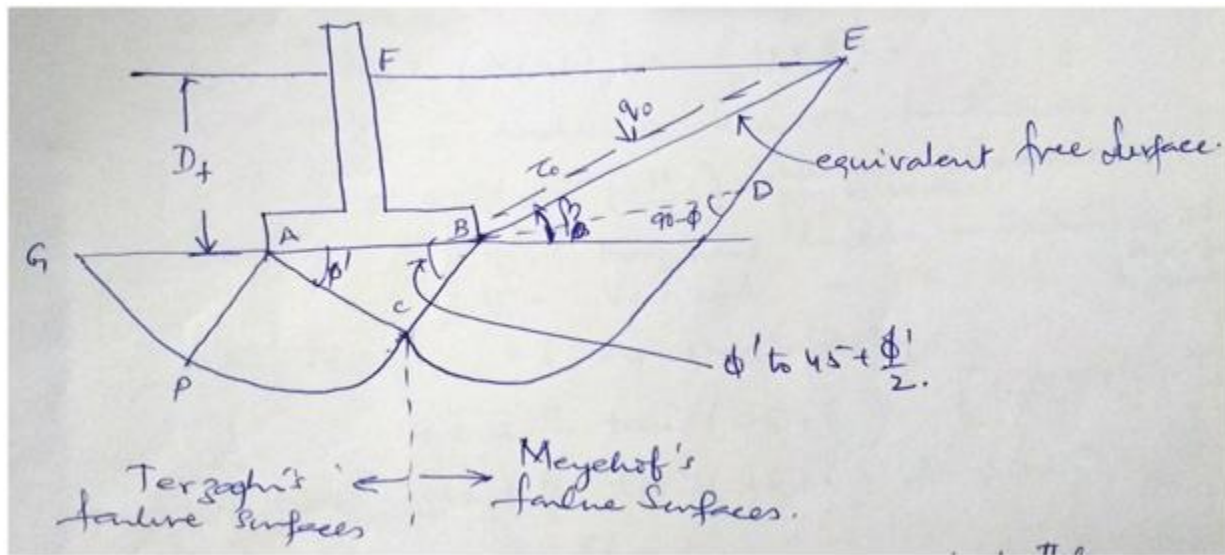 F
E
D_f
q_o
τ_o
equivalent free surface.
β
90-φ
D
G
A
B
φ'
C
P
φ' to 45 + φ'/2.
Terzaghi's
failure surfaces
Meyehof's
failure Surfaces.